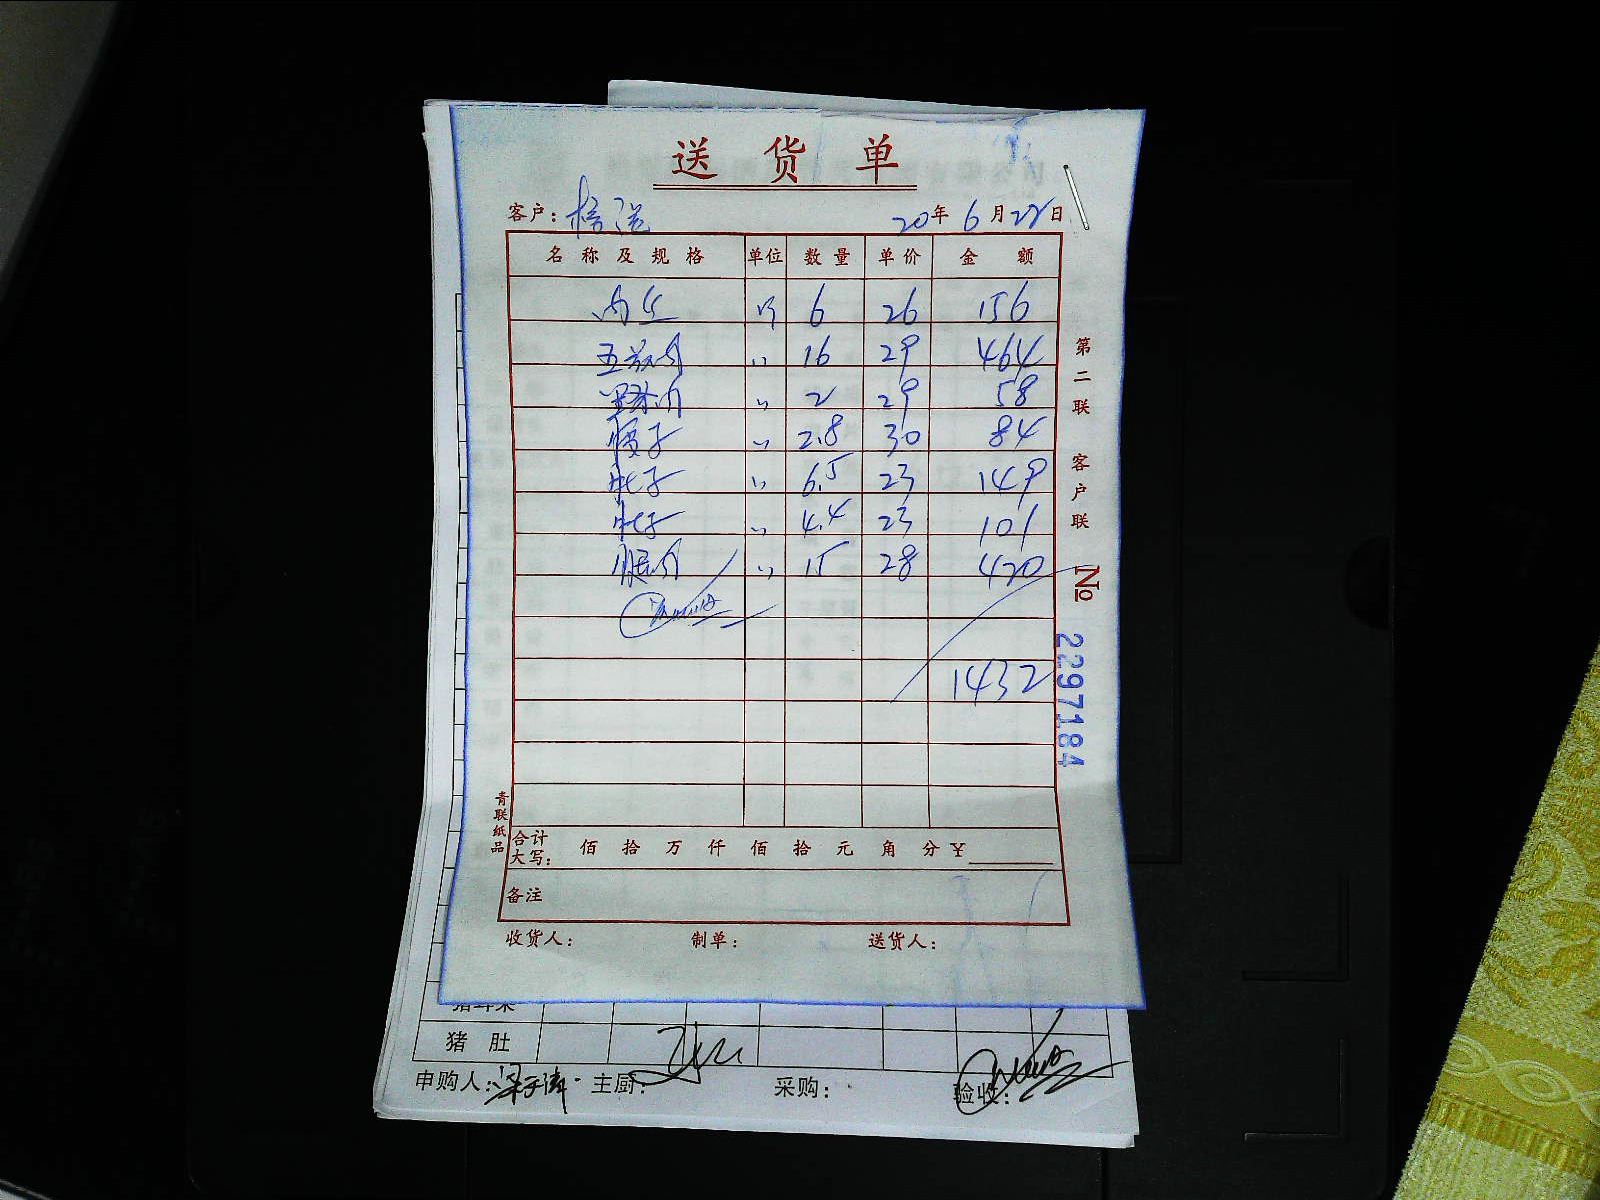 送货单
客户: 20年6月28日
名称及规格 单位 数量 单价 金额
肉丝 斤 6 26 156
五花肉 〃 16 29 464
里脊肉 〃 2 29 58
腰子 〃 2.8 30 84
肚子 〃 6.5 23 149
肚子 〃 4.4 23 101
腿肉 〃 15 28 420
1432
合计大写: 佰 拾 万 仟 佰 拾 元 角 分 ¥
备注
收货人: 制单: 送货人:
第二联 客户联
№ 2297184
青联纸品
猪肚
申购人: 主厨: 采购: 验收: